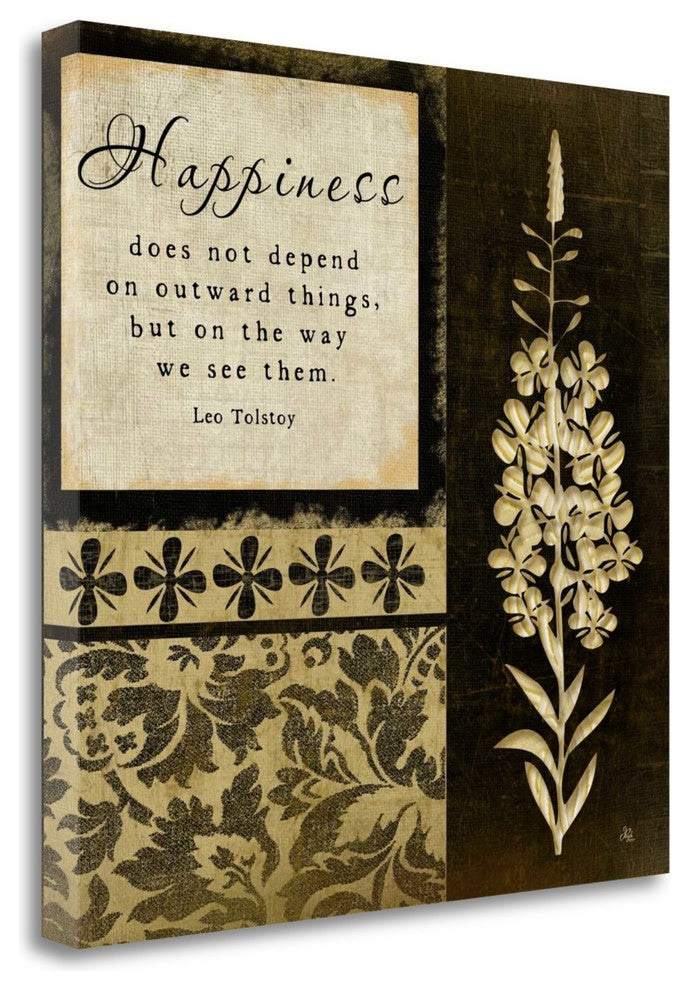 Happiness
does not depend
on outward things,
but on the way
we see them.
Leo Tolstoy